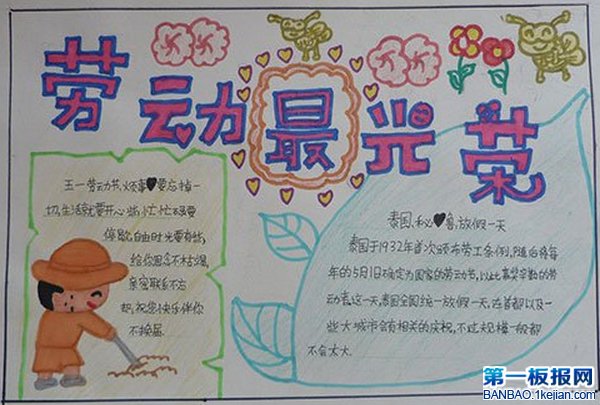 劳动最光荣
五一劳动节,烦事要忘掉一
切,生活就要开心些,忙忙碌碌要
停歇,自由时光要有些,
给你思念不枯竭,
亲密联系不方
却,祝您快乐伴你
不换届.
泰国、秘鲁,放假一天
泰国于1932年首次颁布劳工条例,随后将每
年的5月1日确定为国家的劳动节,以此嘉奖辛勤的劳
动者,这一天,泰国全国统一放假一天,在首都以及一
些大城市会有相关的庆祝,不过规模一般都
不会太大.
第一板报网
BANBAO.1kejian.com